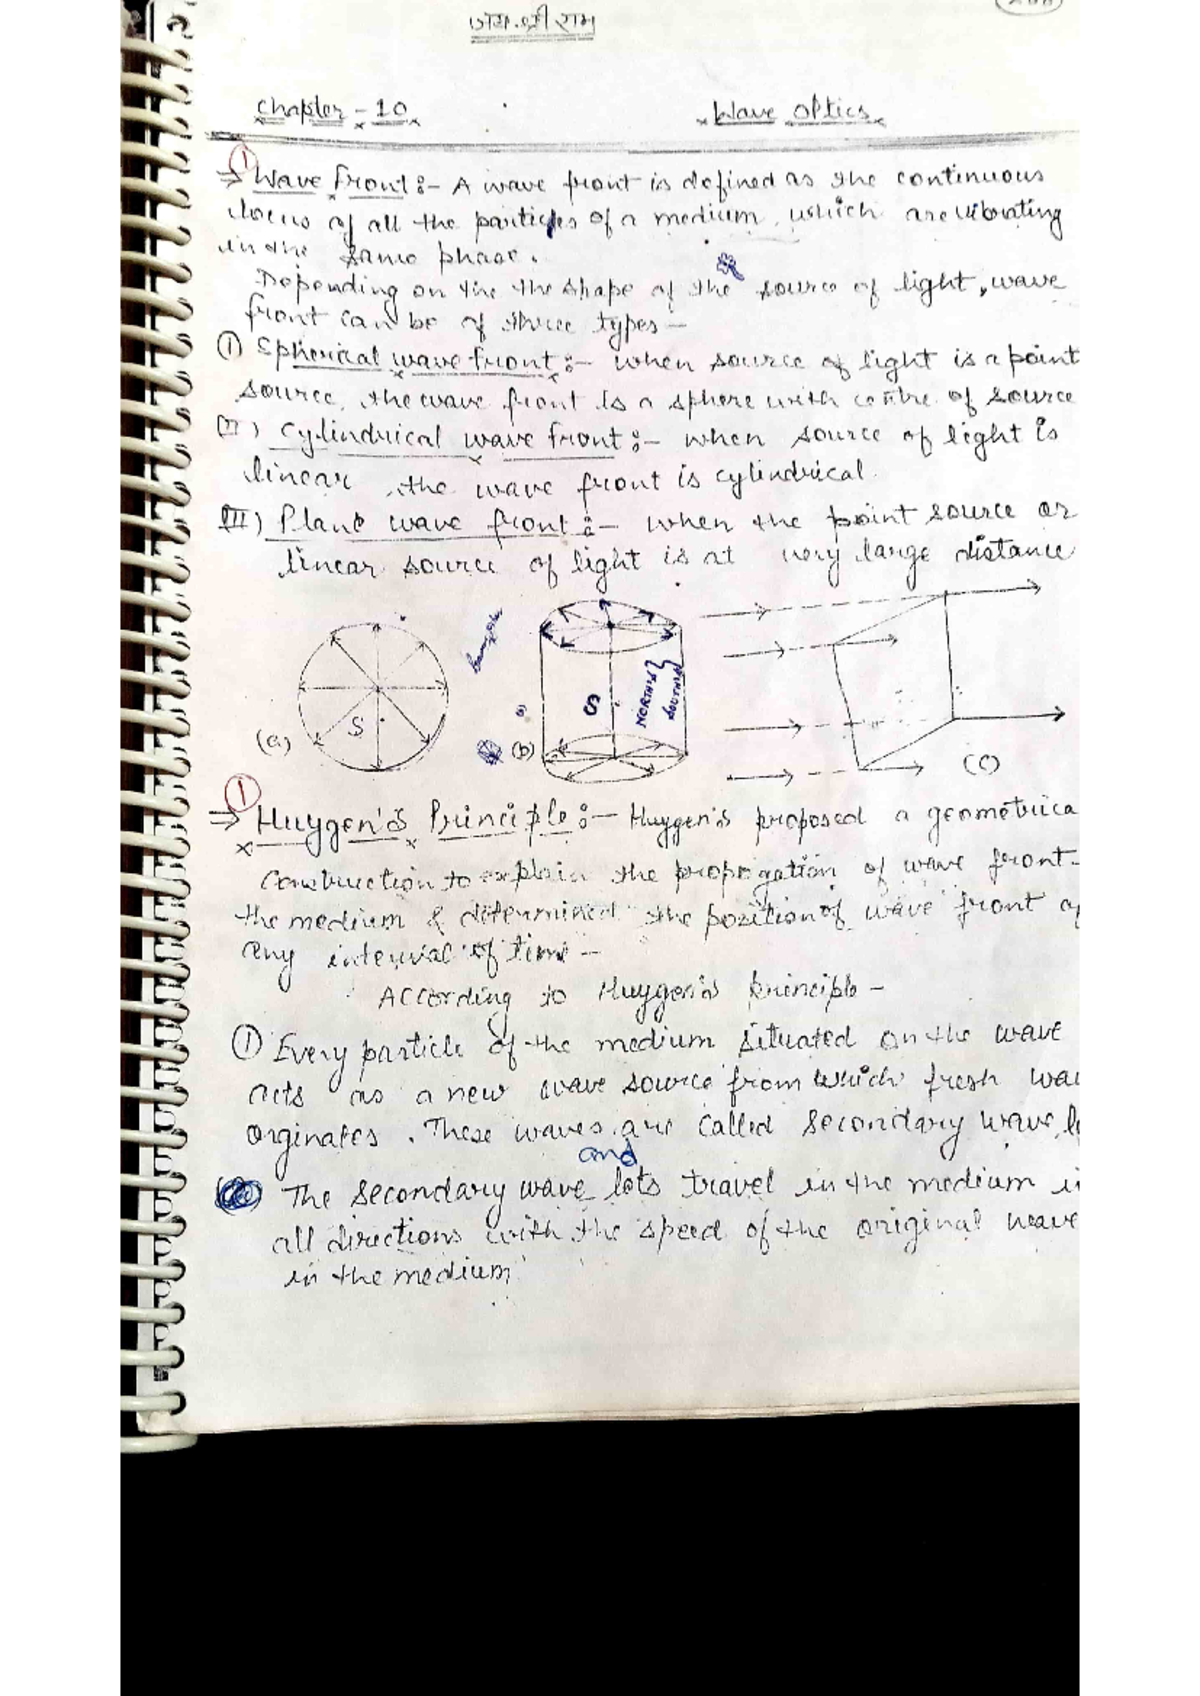 जय श्री राम
Chapter - 10 Wave Optics
① ⇒ Wave front :- A wave front is defined as the continuous
locus of all the particles of a medium, which are vibrating
in the same phase.
Depending on the the shape of the source of light, wave
front can be of three types -
(I) Spherical wave front :- when source of light is a point
source, the wave front is a sphere with centre of source
(II) Cylindrical wave front :- when source of light is
linear, the wave front is cylindrical
(III) Plane wave front :- when the point source or
linear source of light is at very large distance
(a) S
(b) S NORTH SOUTH
(c)
① ⇒ Huygen's Principle :- Huygen's proposed a geometrica
Construction to explain the propogation of wave front
the medium & determined the position of wave front
any interval of time -
According to Huygen's principle -
① Every particle of the medium situated on the wave
acts as a new wave source from which fresh wa
orginates. These waves are called secondary wave
and
The secondary wave lets travel in the medium i
all directions with the speed of the original wave
in the medium